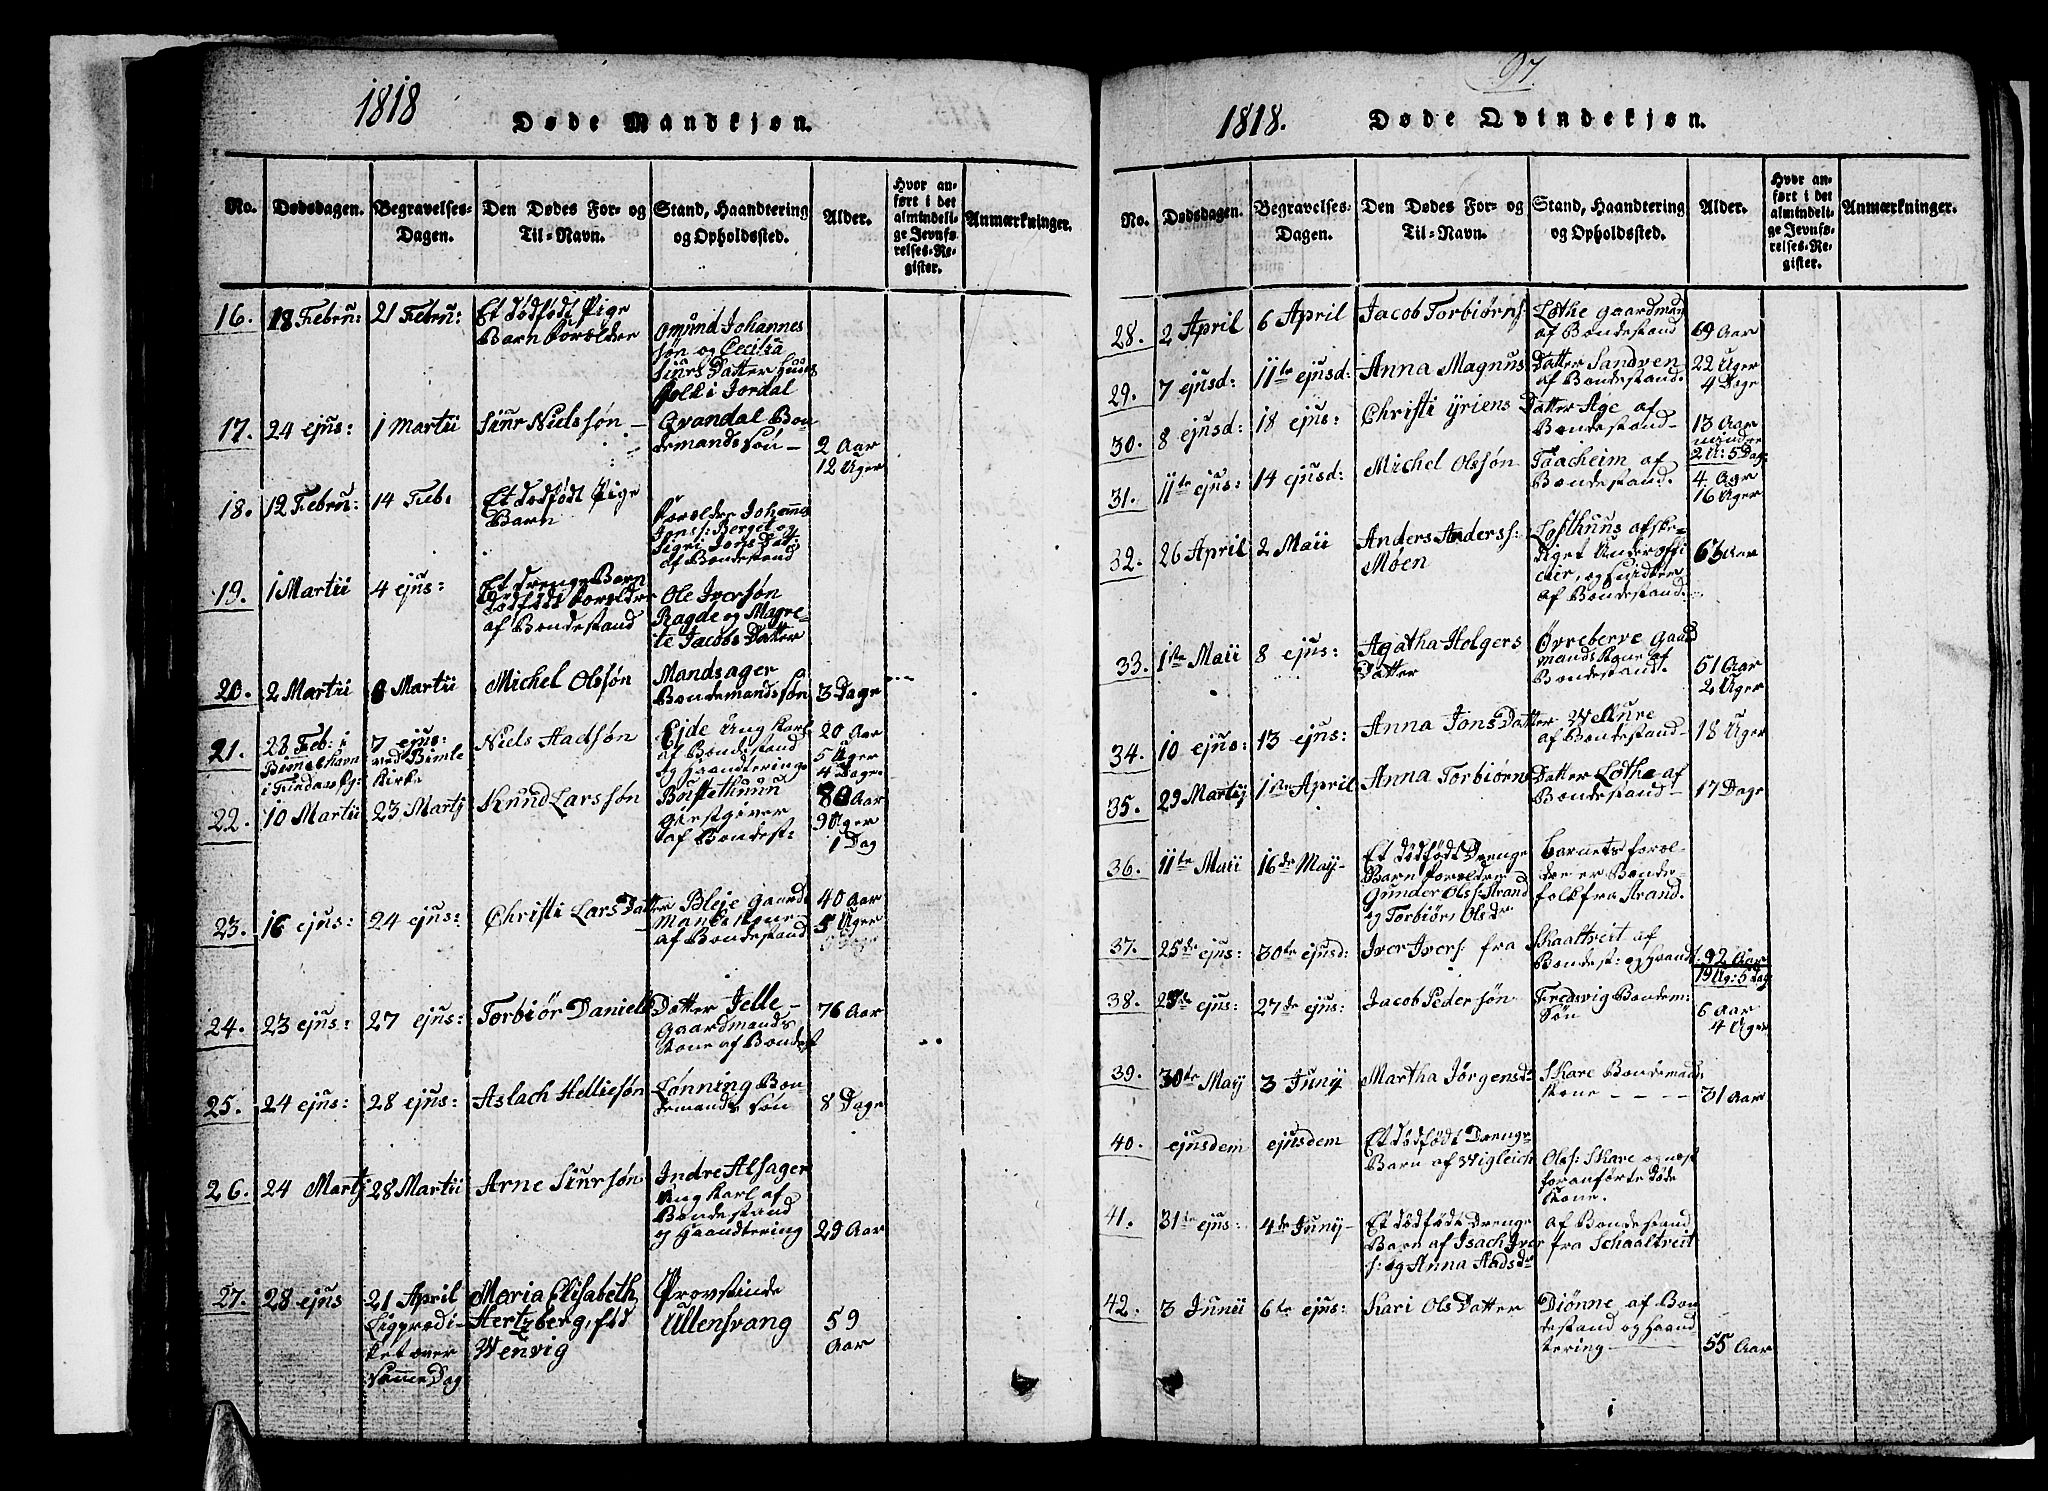 1818
Døde Mandkjøn.
No.
Dødsdagen.
Begravelses-
Dagen.
Den Dødes For- og
Til-Navn.
Stand, Haandtering
og Opholdssted.
Alder.
Hvor an-
ført i det
almindeli-
ge Jevnfø-
relses-Re-
gister.
Anmærkninger.
16. 18 Febru: 21 Febru: Et dødfødt Pige
Barn Forældre
Omund Johannes
søn og Cecilia
Siurs Datter Huus
folk i Jordal
17. 24 ejus: 1 Martii Siur Nielssøn -
Qvandal Bon
demands søn -
2 Aar
12 Uger
18. 12 Febru: 14 Feb: Et dødfødt Pige
Barn
Forældre Johannes
Jons s: Berget og
Sigri Jons Datt
af Bondestand
19. 1 Martii 4 ejus: Et Drenge Barn
dødfødt Forældre
af Bondestand
Ole Iversøn
Ragde og Magre-
te Jacobs Datter
20. 2 Martii 8 Martii Michel Olssøn
Mandsager
Bondemandssøn
3 Dage
21. 28 Feb: i
7 ejus:
ved Bimle
Kirke
Niels Aadsøn
Ejde Ung Karl
af Bondestand
og Haandtering
20 Aar
5 Uger
4 Dage
22. 10 Martii 23 Martij Knud Larssøn
giestgiver
af Bondest:
80 Aar
9 Uger
1 Dag
23. 16 ejus: 24 ejus: Christi Lars Datter
Bleje Gaard
Mands Kone
af Bondestand
40 Aar
5 Uger
24. 23 ejus: 27 ejus: Torbiør Daniels
Datter Jelle -
Gaardmands
Kone af Bondest
76 Aar
25. 24 ejus: 28 ejus: Aslach Helliesøn
Lønning Bon-
demands søn
8 Dage
26. 24 Martj 28 Martii Arne Siursøn
Indre Alsager
Ung Karl af
Bondestand
og Haandtering
29 Aar
27. 28 ejus 21 April
Ligprædi-
ket over
samme Dag
Maria Elisabeth
Hertzberg, fød
Wenvig
Provstinde
Ullensvang
59
Aar
97.
1818.
Døde Qvindekjøn.
No.
Dødsdagen.
Begravelses-
Dagen.
Den Dødes For- og
Til-Navn.
Stand, Haandtering
og Opholdssted.
Alder.
Hvor an-
ført i det
almindeli-
ge Jevnfø-
relses-Re-
gister.
Anmærkninger.
28. 2 April 6 April Jacob Torbiørns:
Lothe gaardmand
af Bondestand
69 Aar
29. 7 ejusd: 11te ejusd: Anna Magnus
Datter Sandven
af Bondestand.
22 Uger
4 Dage
30. 8 ejusd: 18 ejus: Christi Yriens
Datter Age af
Bondestand -
13 Aar
mindre
2 U: 5 Dag
31. 11te ejus: 14 ejusd: Michel Olssøn
Taacheim af
Bondestand.
4 Aar
16 Uger
32. 26 April 2 Maii Anders Anderss:
Moen
Lofthuus afske-
diget Underoffi
cier, og Huidker
af Bondestand.
63 Aar
33. 1ste Maii 8 ejus: Agatha Holgers
Datter
Øvreberve Gaard
mands Kone af
Bondestand.
51 Aar
2 Uger
34. 10 ejus: 13 ejus: Anna Jons Datter
Wellure
af Bondestand -
18 Uger
35. 29 Martij 1ste April Anna Torbiørns
Datter Lothe af
Bondestand -
17 Dage
36. 11te Maii 16de May - Et dødfødt Drenge
Barn Forældre
Gunder Olss: Strand
og Torbiør Olsdr
Barnets foræl-
dre er Bonde-
folk fra Strand.
37. 25de ejus: 30te ejusd: Iver Ivers: fra
Skaaltveit af
Bondest: og Haandt:
92 Aar
19 Ug: 5 Dag
38. ejus: 27de ejus: Jacob Pedersøn
Fredsvig Bondem:
Søn
6 Aar
4 Uger
39. 30te May 3 Junij Martha Jørgensdr
Skare Bondemands
Kone - - - -
31 Aar
40. ejusdem ejusdem Et dødfødt Drenge-
Barn af Wigleich
Olss: Skare og næst
foranførte døde
Kone.
41. 31te ejus: 4de Junij - Et dødfødt Drenge
Barn af Isach Iver
s: og Anna Aadsdr
af Bondestand
fra Schaaltveit
42. 3 Junii 6te ejus: Kari Ols Datter
Diønne af Bon
destand og Haand
tering
55 Aar